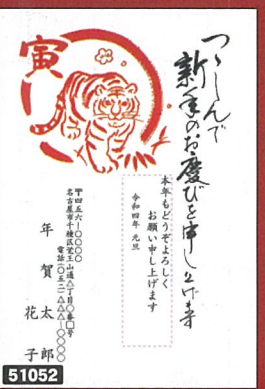 つゝしんで
新年のお慶びを申し上げます
本年もどうぞよろしく
お願い申し上げます
令和四年 元旦
寅
〒四五六-〇〇〇〇
名古屋市千種区覚王山通△丁目〇番□号
電話(〇五二)△△△-〇〇〇〇
年賀太郎
花子
51052